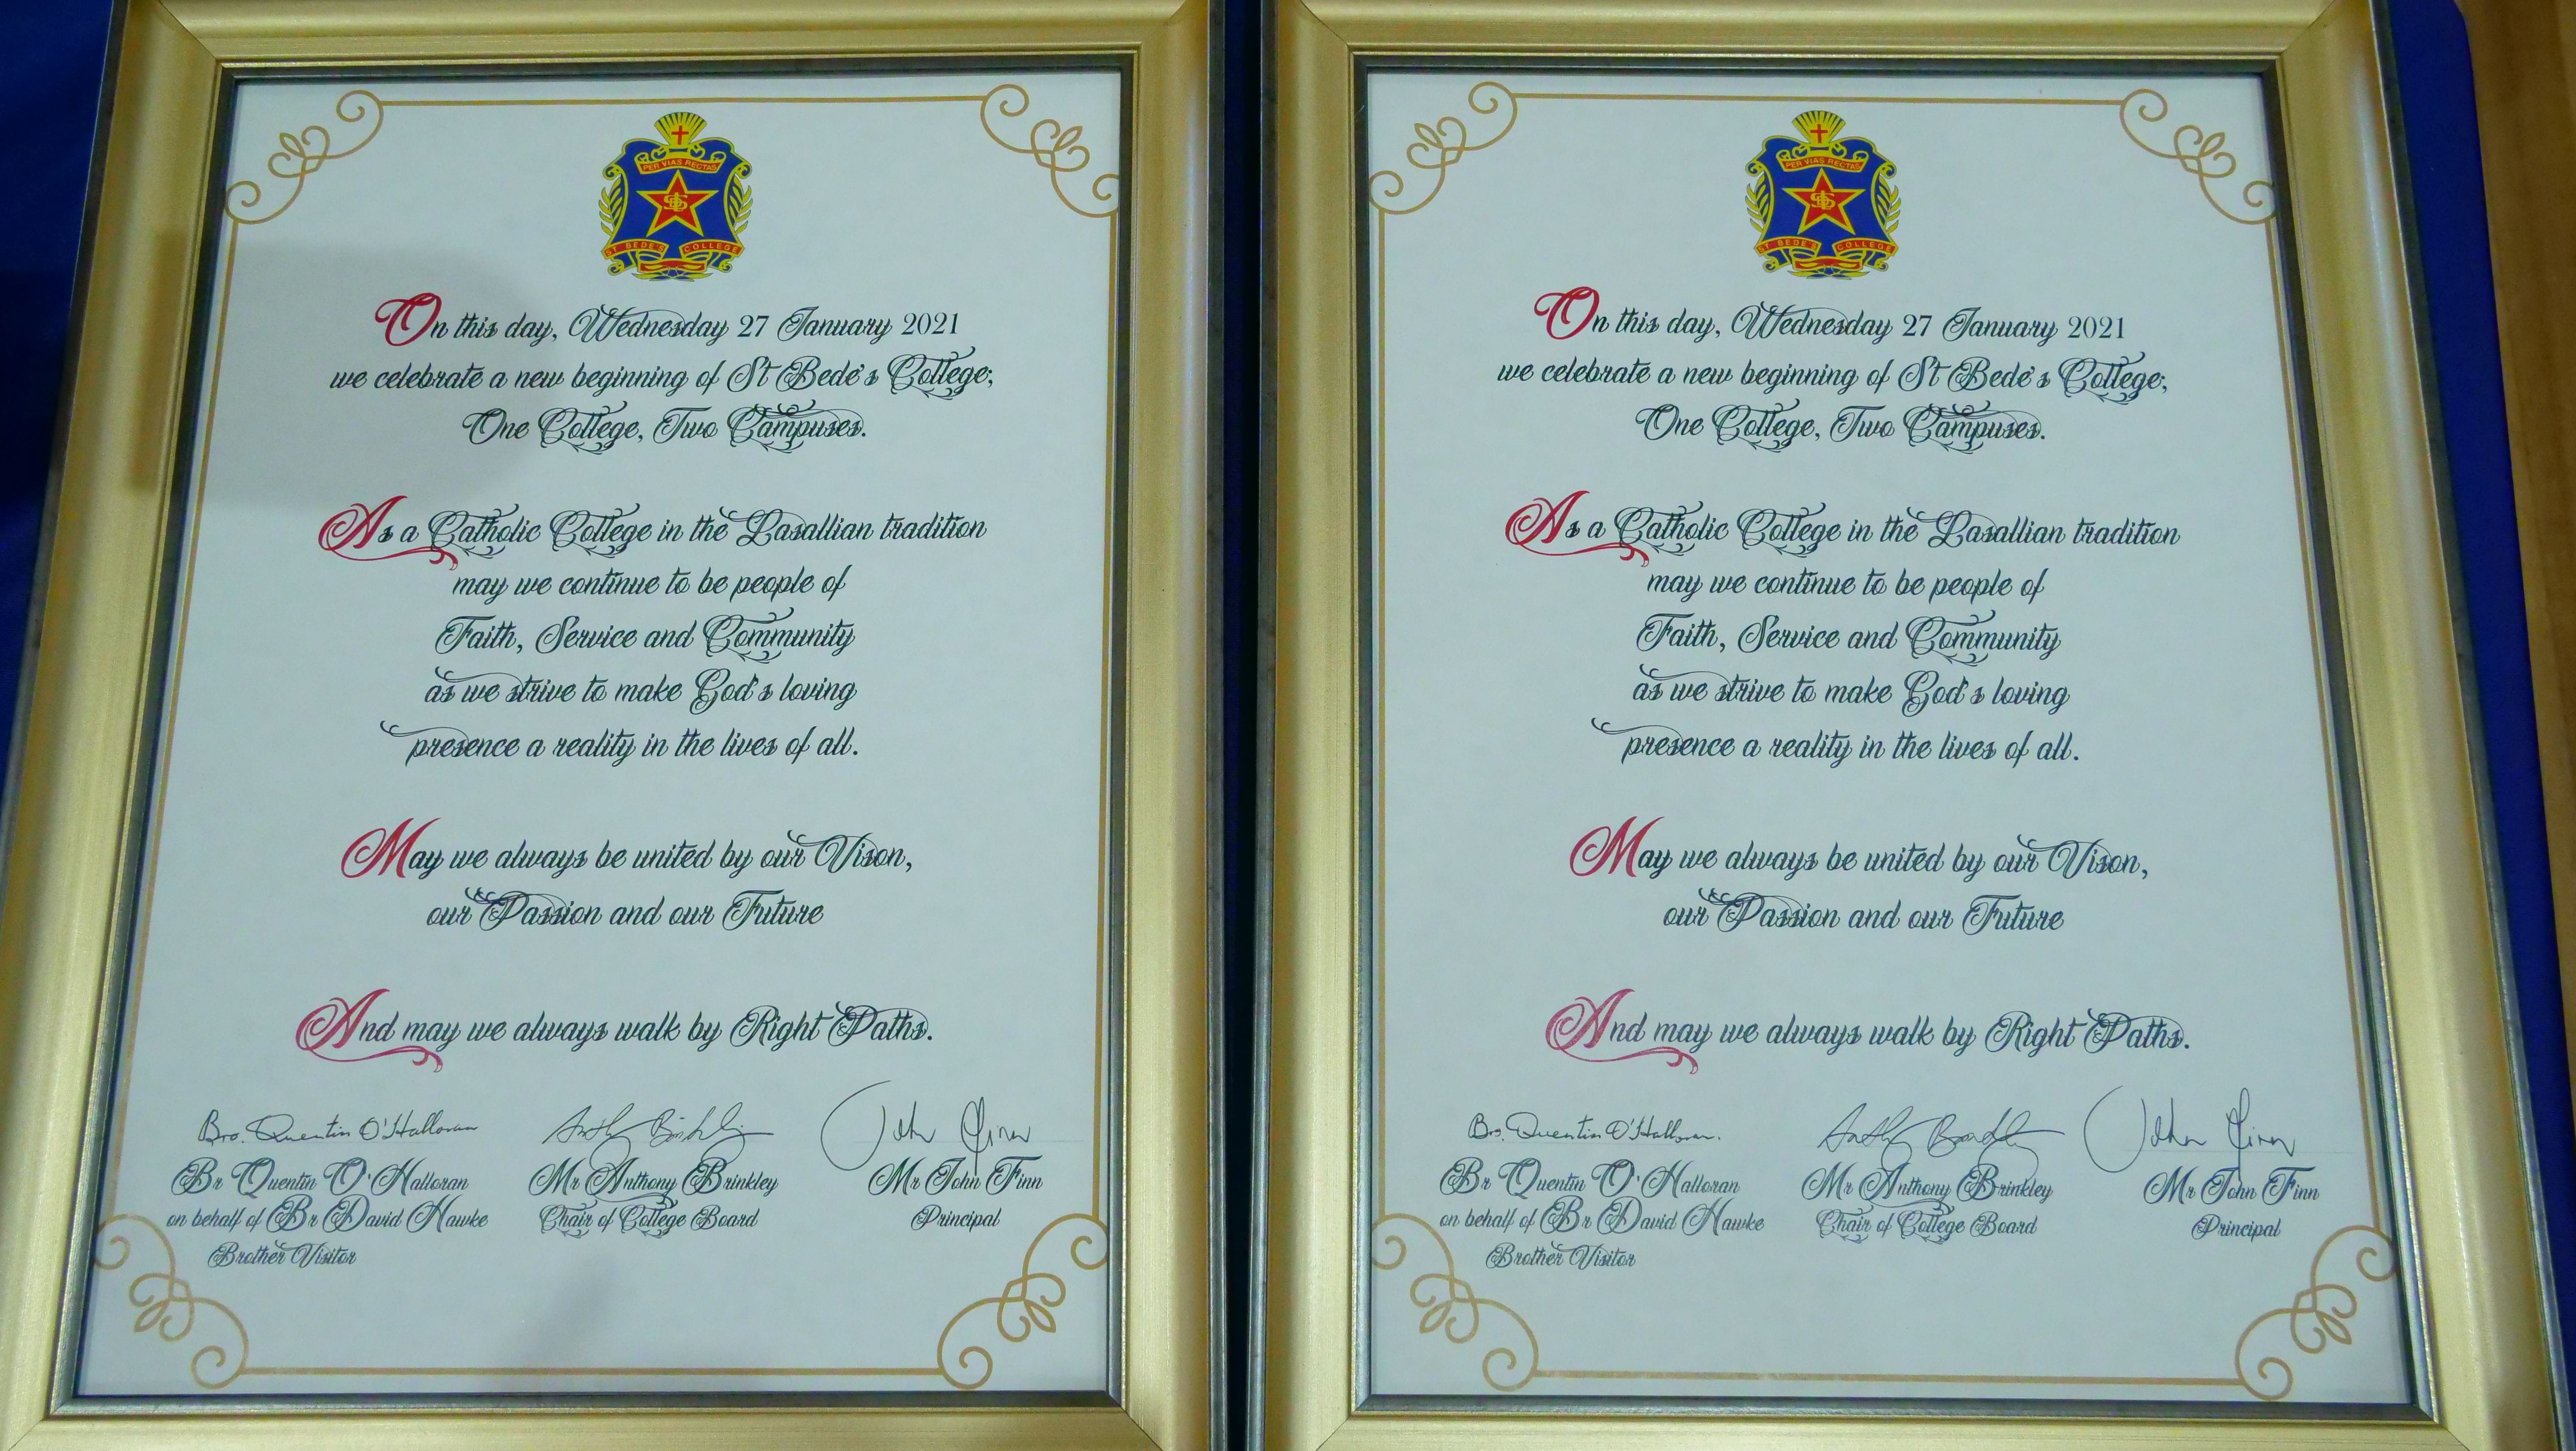 PER VIAS RECTAS
ST BEDE'S COLLEGE
On this day, Wednesday 27 January 2021
we celebrate a new beginning of St Bede's College;
One College, Two Campuses.
As a Catholic College in the Lasallian tradition
may we continue to be people of
Faith, Service and Community
as we strive to make God's loving
presence a reality in the lives of all.
May we always be united by our Vison,
our Passion and our Future
And may we always walk by Right Paths.
Bro. Quentin O'Halloran
Br Quentin O'Halloran
on behalf of Br David Hawke
Brother Visitor
Mr Anthony Brinkley
Chair of College Board
John Finn
Mr John Finn
Principal
PER VIAS RECTAS
ST BEDE'S COLLEGE
On this day, Wednesday 27 January 2021
we celebrate a new beginning of St Bede's College;
One College, Two Campuses.
As a Catholic College in the Lasallian tradition
may we continue to be people of
Faith, Service and Community
as we strive to make God's loving
presence a reality in the lives of all.
May we always be united by our Vison,
our Passion and our Future
And may we always walk by Right Paths.
Bro. Quentin O'Halloran.
Br Quentin O'Halloran
on behalf of Br David Hawke
Brother Visitor
Mr Anthony Brinkley
Chair of College Board
John Finn
Mr John Finn
Principal